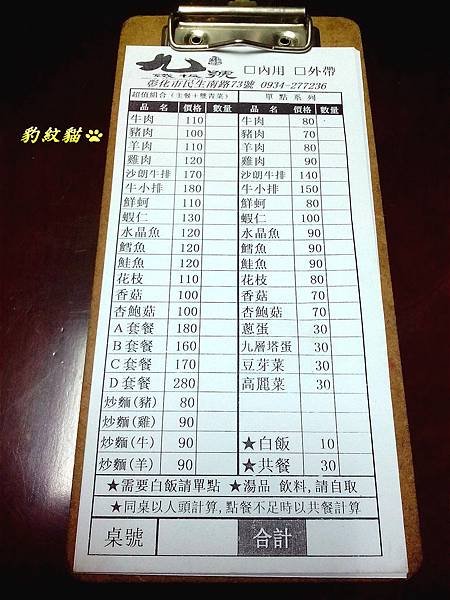 九
鐵板號 □內用 □外帶
彰化市民生南路73號 0934-277236
超值組合(主餐+雙青菜) 單點系列
品名 價格 數量 品名 價格 數量
牛肉 110 牛肉 80
豬肉 100 豬肉 70
羊肉 110 羊肉 80
雞肉 120 雞肉 90
沙朗牛排 170 沙朗牛排 140
牛小排 180 牛小排 150
鮮蚵 110 鮮蚵 80
蝦仁 130 蝦仁 100
水晶魚 120 水晶魚 90
鱈魚 120 鱈魚 90
鮭魚 120 鮭魚 90
花枝 110 花枝 80
香菇 100 香菇 70
杏鮑菇 100 杏鮑菇 70
A套餐 180 蔥蛋 30
B套餐 160 九層塔蛋 30
C套餐 170 豆芽菜 30
D套餐 280 高麗菜 30
炒麵(豬) 80
炒麵(雞) 90
炒麵(牛) 90 ★白飯 10
炒麵(羊) 90 ★共餐 30
★需要白飯請單點 ★湯品 飲料,請自取
★同桌以人頭計算,點餐不足時以共餐計算
桌號 合計
豹紋貓